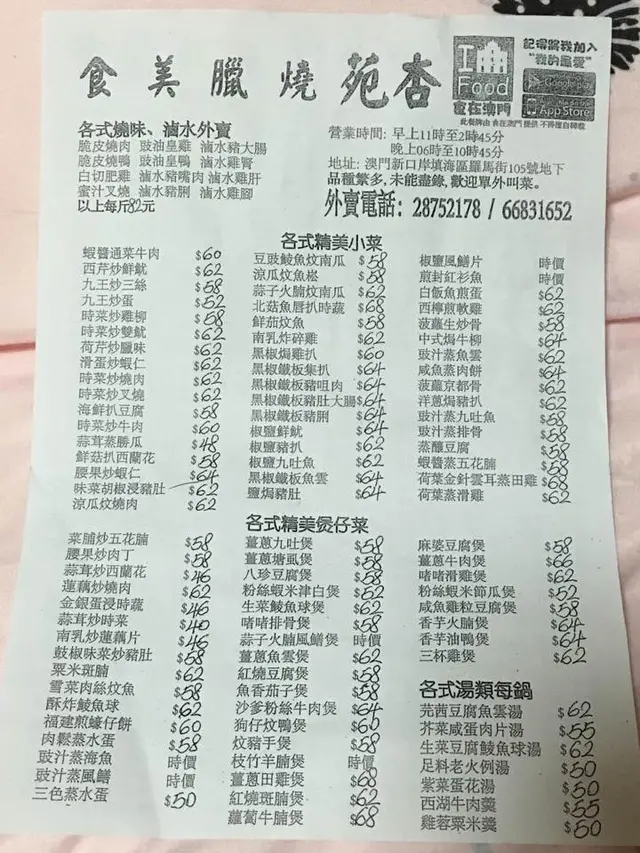 食美臘燒苑杏
I
Food
食在澳門
記得將我加入
"我的最愛"
App Store
此餐牌由 食在澳門 提供 不得擅自轉載
各式燒味、滷水外賣
脆皮燒肉 豉油皇雞 滷水豬大腸
脆皮燒鴨 豉油皇鴨 滷水雞腎
白切肥雞 滷水豬嘴肉 滷水雞肝
蜜汁叉燒 滷水豬脷 滷水雞腳
以上每斤82元
營業時間: 早上11時至2時45分
晚上06時至10時45分
地址: 澳門新口岸填海區羅馬街105號地下
品種繁多,未能盡錄,歡迎單外叫菜。
外賣電話: 28752178 / 66831652
各式精美小菜
蝦醬通菜牛肉 $60
西芹炒鮮魷 $62
九王炒三絲 $58
九王炒蛋 $52
時菜炒雞柳 $58
時菜炒雙魷 $62
荷芹炒臘味 $62
滑蛋炒蝦仁 $62
時菜炒燒肉 $62
時菜炒叉燒 $62
海鮮扒豆腐 $58
時菜炒牛肉 $60
蒜茸蒸勝瓜 $48
鮮菇扒西蘭花 $58
腰果炒蝦仁 $64
味菜胡椒浸豬肚 $62
涼瓜炆燒肉 $62
豆豉鯪魚炆南瓜 $58
涼瓜炆魚崧 $58
蒜子火腩炆南瓜 $62
北菇魚唇扒時蔬 $68
鮮茄炆魚 $58
南乳炸碎雞 $62
黑椒焗雞扒 $60
黑椒鐵板集扒 $64
黑椒鐵板豬咀肉 $64
黑椒鐵板豬肚大腸 $64
黑椒鐵板豬脷 $64
椒鹽鮮魷 $64
椒鹽豬扒 $62
椒鹽九吐魚 $62
黑椒鐵板魚雲 $64
鹽焗豬肚 $64
椒鹽風鱔片 時價
煎封紅衫魚 時價
白飯魚煎蛋 $62
西檸煎軟雞 $62
菠蘿生炒骨 $58
中式焗牛柳 $64
豉汁蒸魚雲 $62
咸魚蒸肉餅 $64
菠蘿京都骨 $62
洋蔥焗豬扒 $62
豉汁蒸九吐魚 $58
豉汁蒸排骨 $58
蒸釀豆腐 $58
蝦醬蒸五花腩 $58
荷葉金針雲耳蒸田雞 $68
荷葉蒸滑雞 $62
各式精美煲仔菜
菜脯炒五花腩 $58
腰果炒肉丁 $58
蒜茸炒西蘭花 $46
蓮藕炒燒肉 $62
金銀蛋浸時蔬 $46
蒜茸炒時菜 $40
南乳炒蓮藕片 $46
鼓椒味菜炒豬肚 $58
粟米斑腩 $62
雪菜肉絲炆魚 $58
酥炸鯪魚球 $62
福建煎蠔仔餅 $60
肉鬆蒸水蛋 $58
豉汁蒸海魚 時價
豉汁蒸風鱔 時價
三色蒸水蛋 $50
薑蔥九吐煲 $58
薑蔥塘虱煲 $58
八珍豆腐煲 $58
粉絲蝦米津白煲 $52
生菜鯪魚球煲 $62
啫啫排骨煲 $58
蒜子火腩風鱔煲 時價
薑蔥魚雲煲 $62
紅燒豆腐煲 $58
魚香茄子煲 $58
沙爹粉絲牛肉煲 $64
狗仔炆鴨煲 $60
炆豬手煲 $58
枝竹羊腩煲 時價
薑蔥田雞煲 $68
紅燒斑腩煲 $62
蘿蔔牛腩煲 $68
麻婆豆腐煲 $58
薑蔥牛肉煲 $66
啫啫滑雞煲 $62
粉絲蝦米節瓜煲 $52
咸魚雞粒豆腐煲 $58
香芋火腩煲 $64
香芋油鴨煲 $64
三杯雞煲 $62
各式湯類每鍋
芫茜豆腐魚雲湯 $62
芥菜咸蛋肉片湯 $55
生菜豆腐鯪魚球湯 $62
足料老火例湯 $50
紫菜蛋花湯 $50
西湖牛肉羹 $55
雞蓉粟米羹 $50